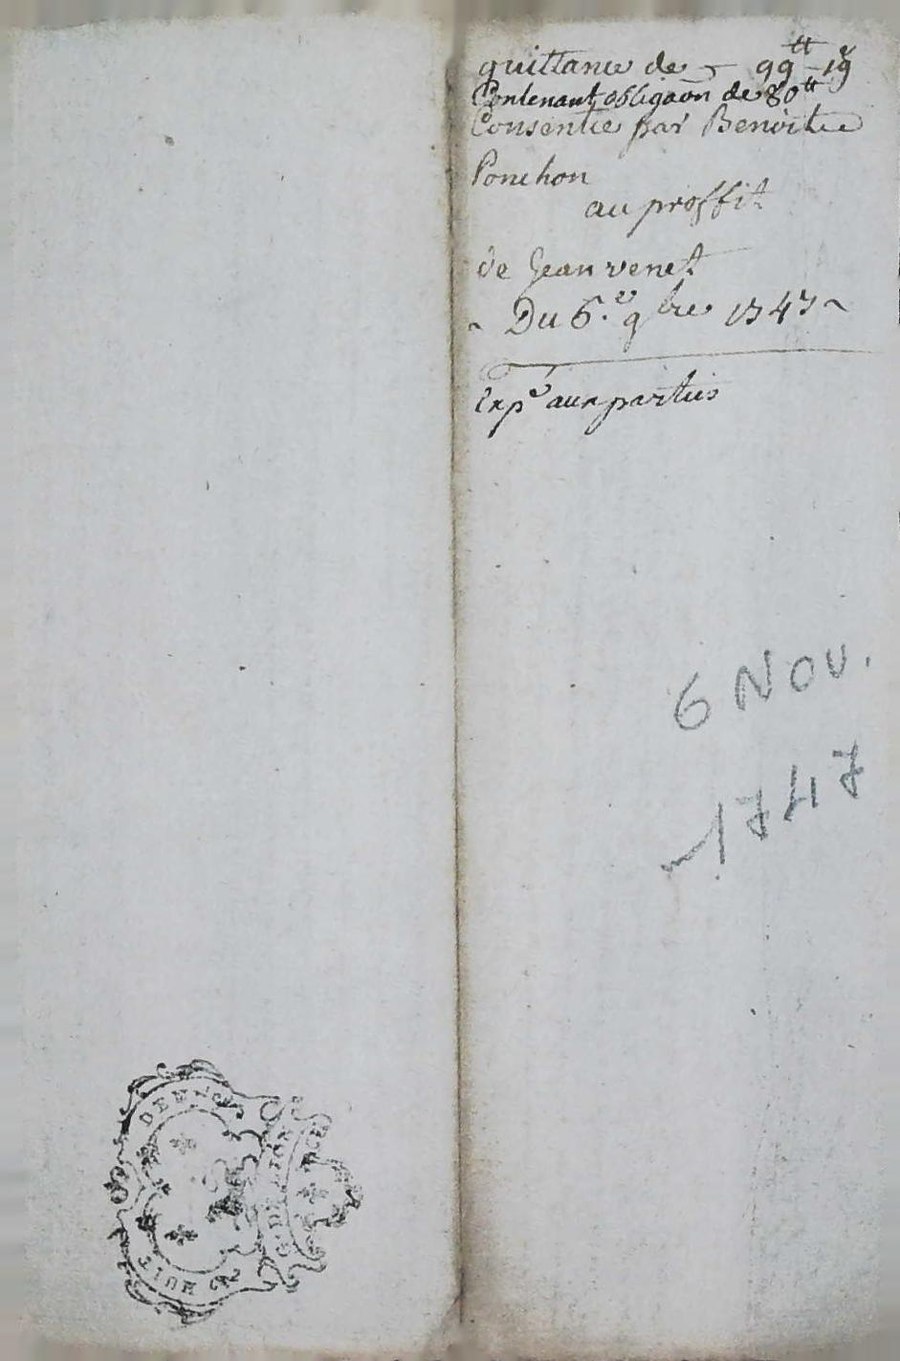 quittance de 99ᵗᵗ 19ˢ
Contenant obligaõn de 80ᵗᵗ
Consentie par Benoite
Ponchon
au proffit
de Jean venet
~ Du 6.ᵉ 9ᵇʳᵉ 1747 ~
Expᵉ aux parties
6 NOV.
1747
HUIT DEN.
G. DE LION